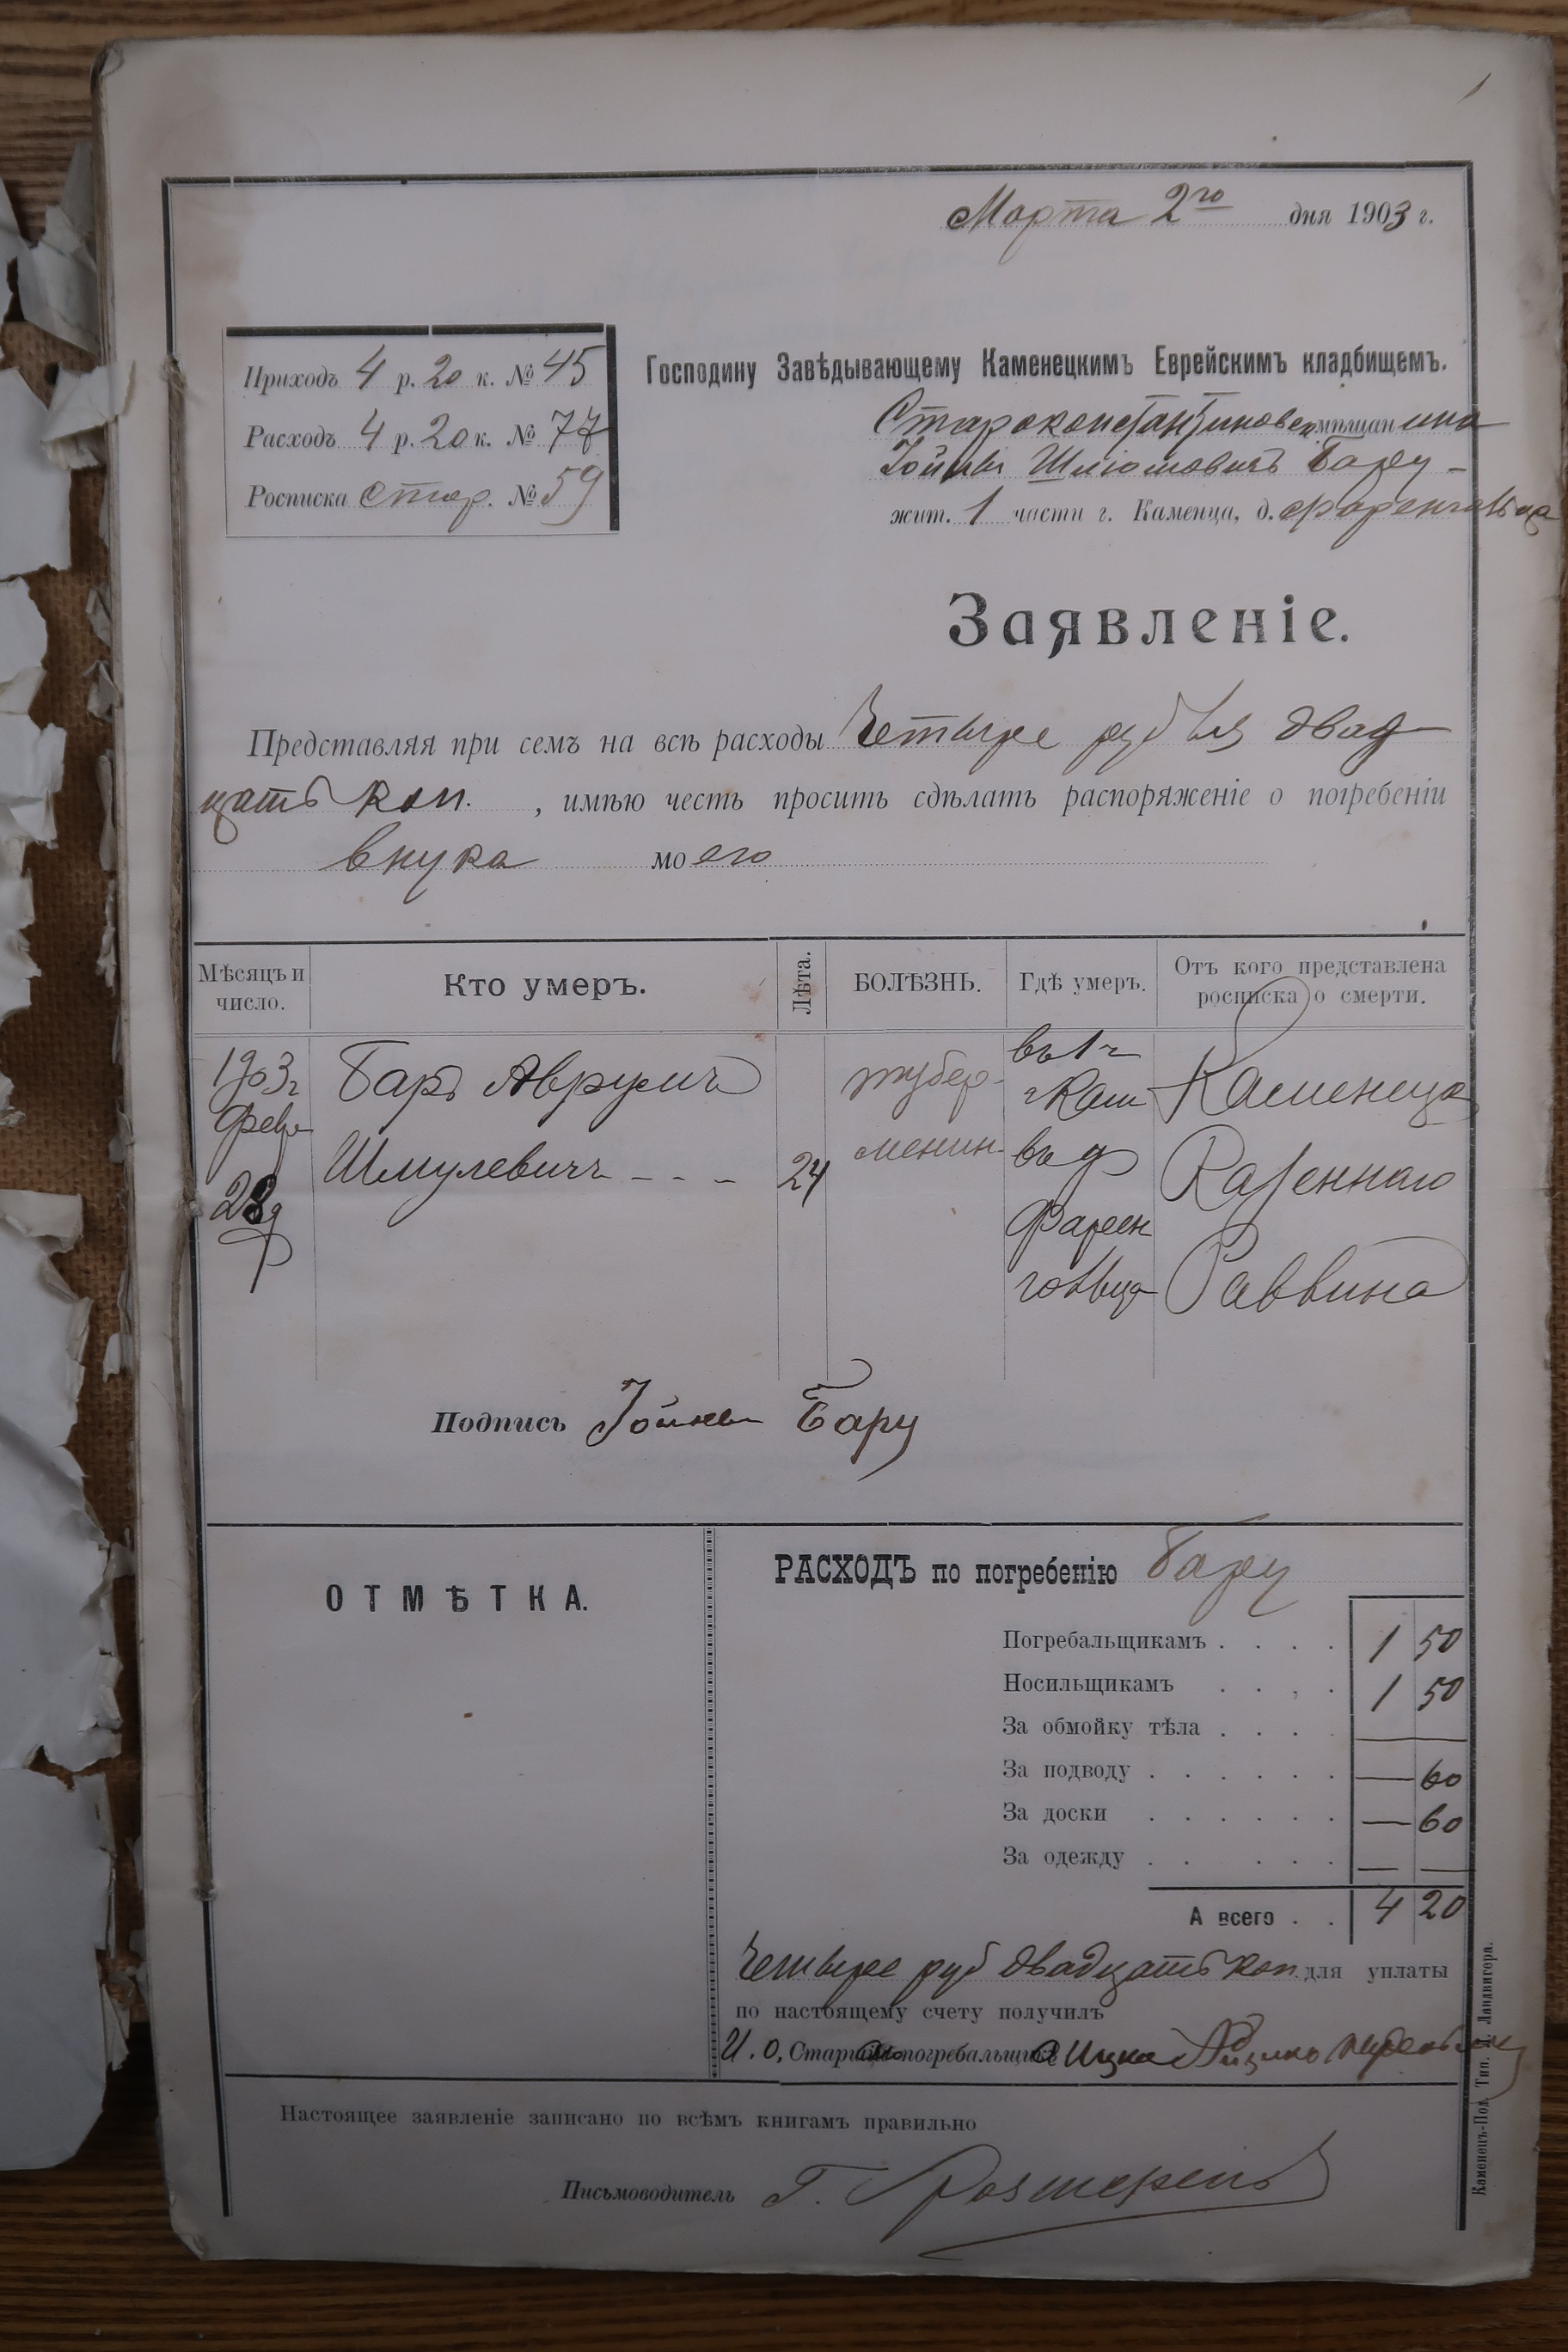 Марта 2го дня 1903 г.
Приходъ 4 р. 20 к. № 45
Расходъ 4 р. 20 к. № 77
Росписка стар. № 59
Господину Завѣдывающему Каменецкимъ Еврейскимъ кладбищемъ.
Староконстантиновск мѣщанина
Шлiомовичъ Бару
жит. 1 части г. Каменца, д. Фаренгольца
Заявленіе.
Представляя при семъ на всѣ расходы Четыре рубля двад
цать коп. , имѣю честь просить сдѣлать распоряженіе о погребеніи
внука моего
Мѣсяцъ и число.
Кто умеръ.
Лѣта.
БОЛѢЗНЬ.
Гдѣ умеръ.
Отъ кого представлена росписка о смерти.
1903г
Февр
28д
Баръ Аврумъ
Шмулевичъ - - -
24
тубер.
менин.
въ 1 ч
г Кам
въ д
Фарен
гольца
Каменецка
Казеннаго
Раввина
Подпись Бару
ОТМѢТКА.
РАСХОДЪ по погребенію Бару
Погребальщикамъ . . . . 1 50
Носильщикамъ . . . . 1 50
За обмойку тѣла . . . . —
За подводу . . . . . . — 60
За доски . . . . . . — 60
За одежду . . . . . . — —
А всего . . 4 20
Четыре руб двадцать коп. для уплаты
по настоящему счету получилъ
И. О. погребальщика Ицко
Настоящее заявленіе записано по всѣмъ книгамъ правильно
Письмоводитель Г.
Каменецъ-Под. Тип. Д. Ландвигера.